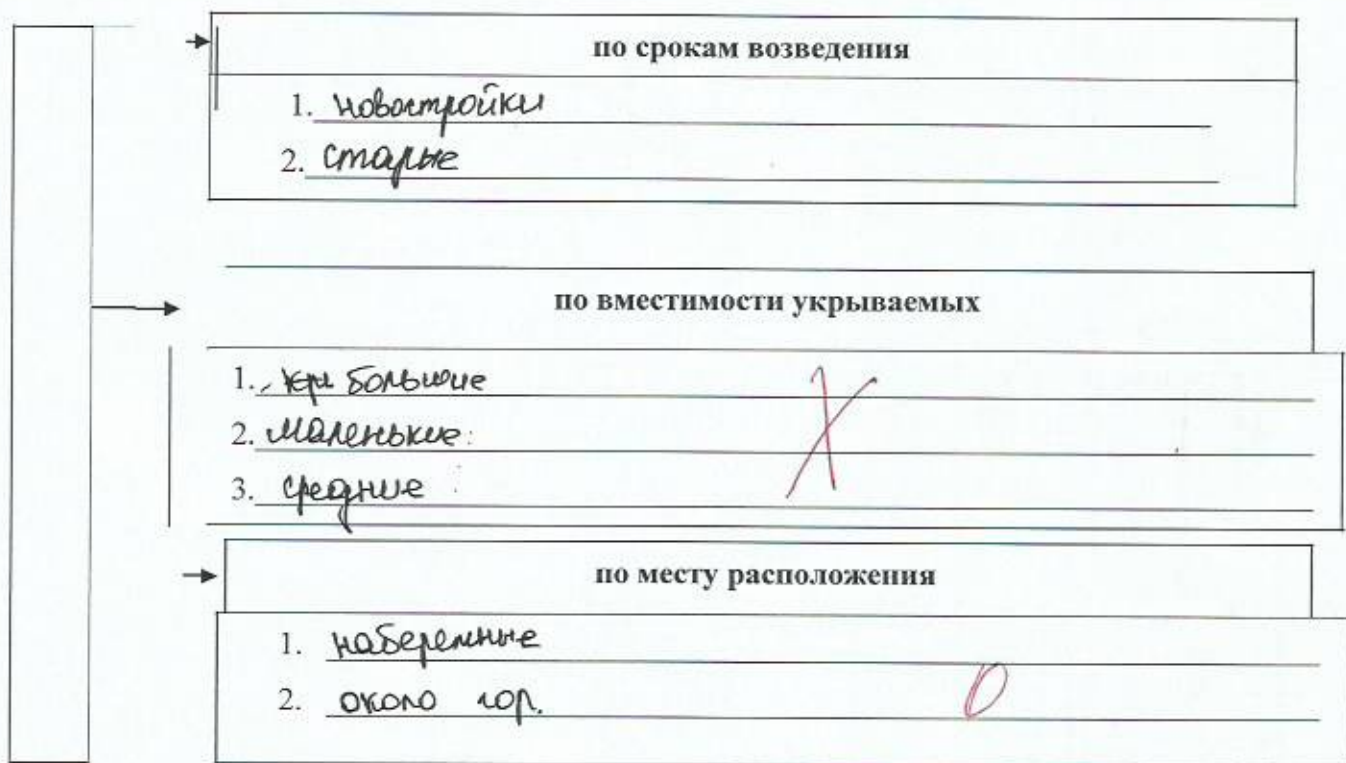 по срокам возведения
1. новостройки
2. старые
по вместимости укрываемых
1. большие
2. маленькие
3. средние
по месту расположения
1. набережные
2. около гор.
0